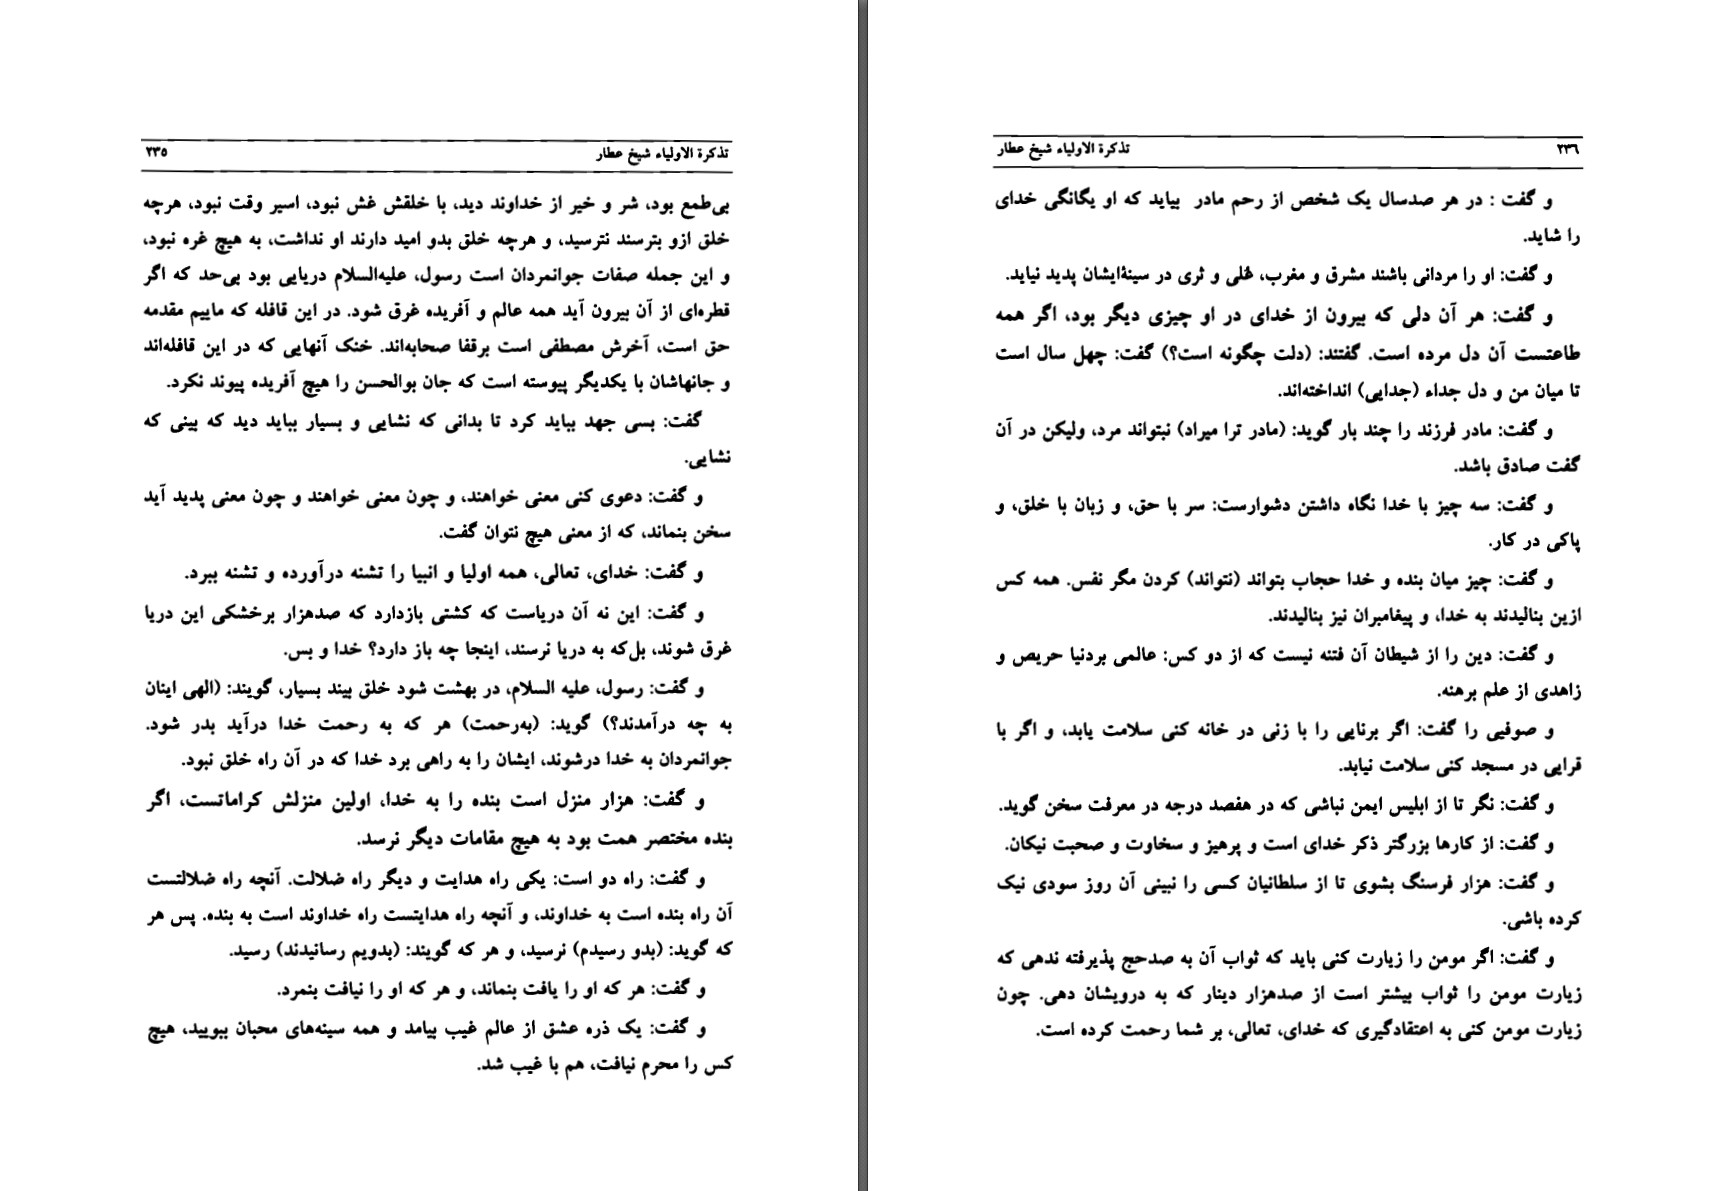 تذکرة الاولیاء شیخ عطار ۲۳۵
بی‌طمع بود، شر و خیر از خداوند دید، با خلقش غش نبود، اسیر وقت نبود، هرچه
خلق ازو بترسند نترسید، و هرچه خلق بدو امید دارند او نداشت، به هیچ غره نبود،
و این جمله صفات جوانمردان است رسول، علیه‌السلام دریایی بود بی‌حد که اگر
قطره‌ای از آن بیرون آید همه عالم و آفریده غرق شود. در این قافله که ماییم مقدمه
حق است، آخرش مصطفی است برقفا صحابه‌اند. خنک آنهایی که در این قافله‌اند
و جانهاشان با یکدیگر پیوسته است که جان بوالحسن را هیچ آفریده پیوند نکرد.
گفت: بسی جهد بباید کرد تا بدانی که نشایی و بسیار بباید دید که بینی که
نشایی.
و گفت: دعوی کنی معنی خواهند، و چون معنی خواهند و چون معنی پدید آید
سخن بنماند، که از معنی هیچ نتوان گفت.
و گفت: خدای، تعالی، همه اولیا و انبیا را تشنه درآورده و تشنه ببرد.
و گفت: این نه آن دریاست که کشتی بازدارد که صدهزار برخشکی این دریا
غرق شوند، بل‌که به دریا نرسند، اینجا چه باز دارد؟ خدا و بس.
و گفت: رسول، علیه السلام، در بهشت شود خلق بیند بسیار، گویند: (الهی اینان
به چه درآمدند؟) گوید: (به‌رحمت) هر که به رحمت خدا درآید بدر شود.
جوانمردان به خدا درشوند، ایشان را به راهی برد خدا که در آن راه خلق نبود.
و گفت: هزار منزل است بنده را به خدا، اولین منزلش کراماتست، اگر
بنده مختصر همت بود به هیچ مقامات دیگر نرسد.
و گفت: راه دو است: یکی راه هدایت و دیگر راه ضلالت. آنچه راه ضلالتست
آن راه بنده است به خداوند، و آنچه راه هدایتست راه خداوند است به بنده. پس هر
که گوید: (بدو رسیدم) نرسید، و هر که گویند: (بدویم رسانیدند) رسید.
و گفت: هر که او را یافت بنماند، و هر که او را نیافت بنمرد.
و گفت: یک ذره عشق از عالم غیب پیامد و همه سینه‌های محبان ببویید، هیچ
کس را محرم نیافت، هم با غیب شد.
۲۳۶ تذکرة الاولیاء شیخ عطار
و گفت : در هر صدسال یک شخص از رحم مادر بیاید که او یگانگی خدای
را شاید.
و گفت: او را مردانی باشند مشرق و مغرب، عُلی و ثری در سینهٔ‌ایشان پدید نیاید.
و گفت: هر آن دلی که بیرون از خدای در او چیزی دیگر بود، اگر همه
طاعتست آن دل مرده است. گفتند: (دلت چگونه است؟) گفت: چهل سال است
تا میان من و دل جداء (جدایی) انداخته‌اند.
و گفت: مادر فرزند را چند بار گوید: (مادر ترا میراد) نبتواند مرد، ولیکن در آن
گفت صادق باشد.
و گفت: سه چیز با خدا نگاه داشتن دشوارست: سر با حق، و زبان با خلق، و
پاکی در کار.
و گفت: چیز میان بنده و خدا حجاب بتواند (نتواند) کردن مگر نفس. همه کس
ازین بنالیدند به خدا، و پیغامبران نیز بنالیدند.
و گفت: دین را از شیطان آن فتنه نیست که از دو کس: عالمی بردنیا حریص و
زاهدی از علم برهنه.
و صوفیی را گفت: اگر برنایی را با زنی در خانه کنی سلامت یابد، و اگر با
قرایی در مسجد کنی سلامت نیابد.
و گفت: نگر تا از ابلیس ایمن نباشی که در هفصد درجه در معرفت سخن گوید.
و گفت: از کارها بزرگتر ذکر خدای است و پرهیز و سخاوت و صحبت نیکان.
و گفت: هزار فرسنگ بشوی تا از سلطانیان کسی را نبینی آن روز سودی نیک
کرده باشی.
و گفت: اگر مومن را زیارت کنی باید که ثواب آن به صدحج پذیرفته ندهی که
زیارت مومن را ثواب بیشتر است از صدهزار دینار که به درویشان دهی. چون
زیارت مومن کنی به اعتقادگیری که خدای، تعالی، بر شما رحمت کرده است.